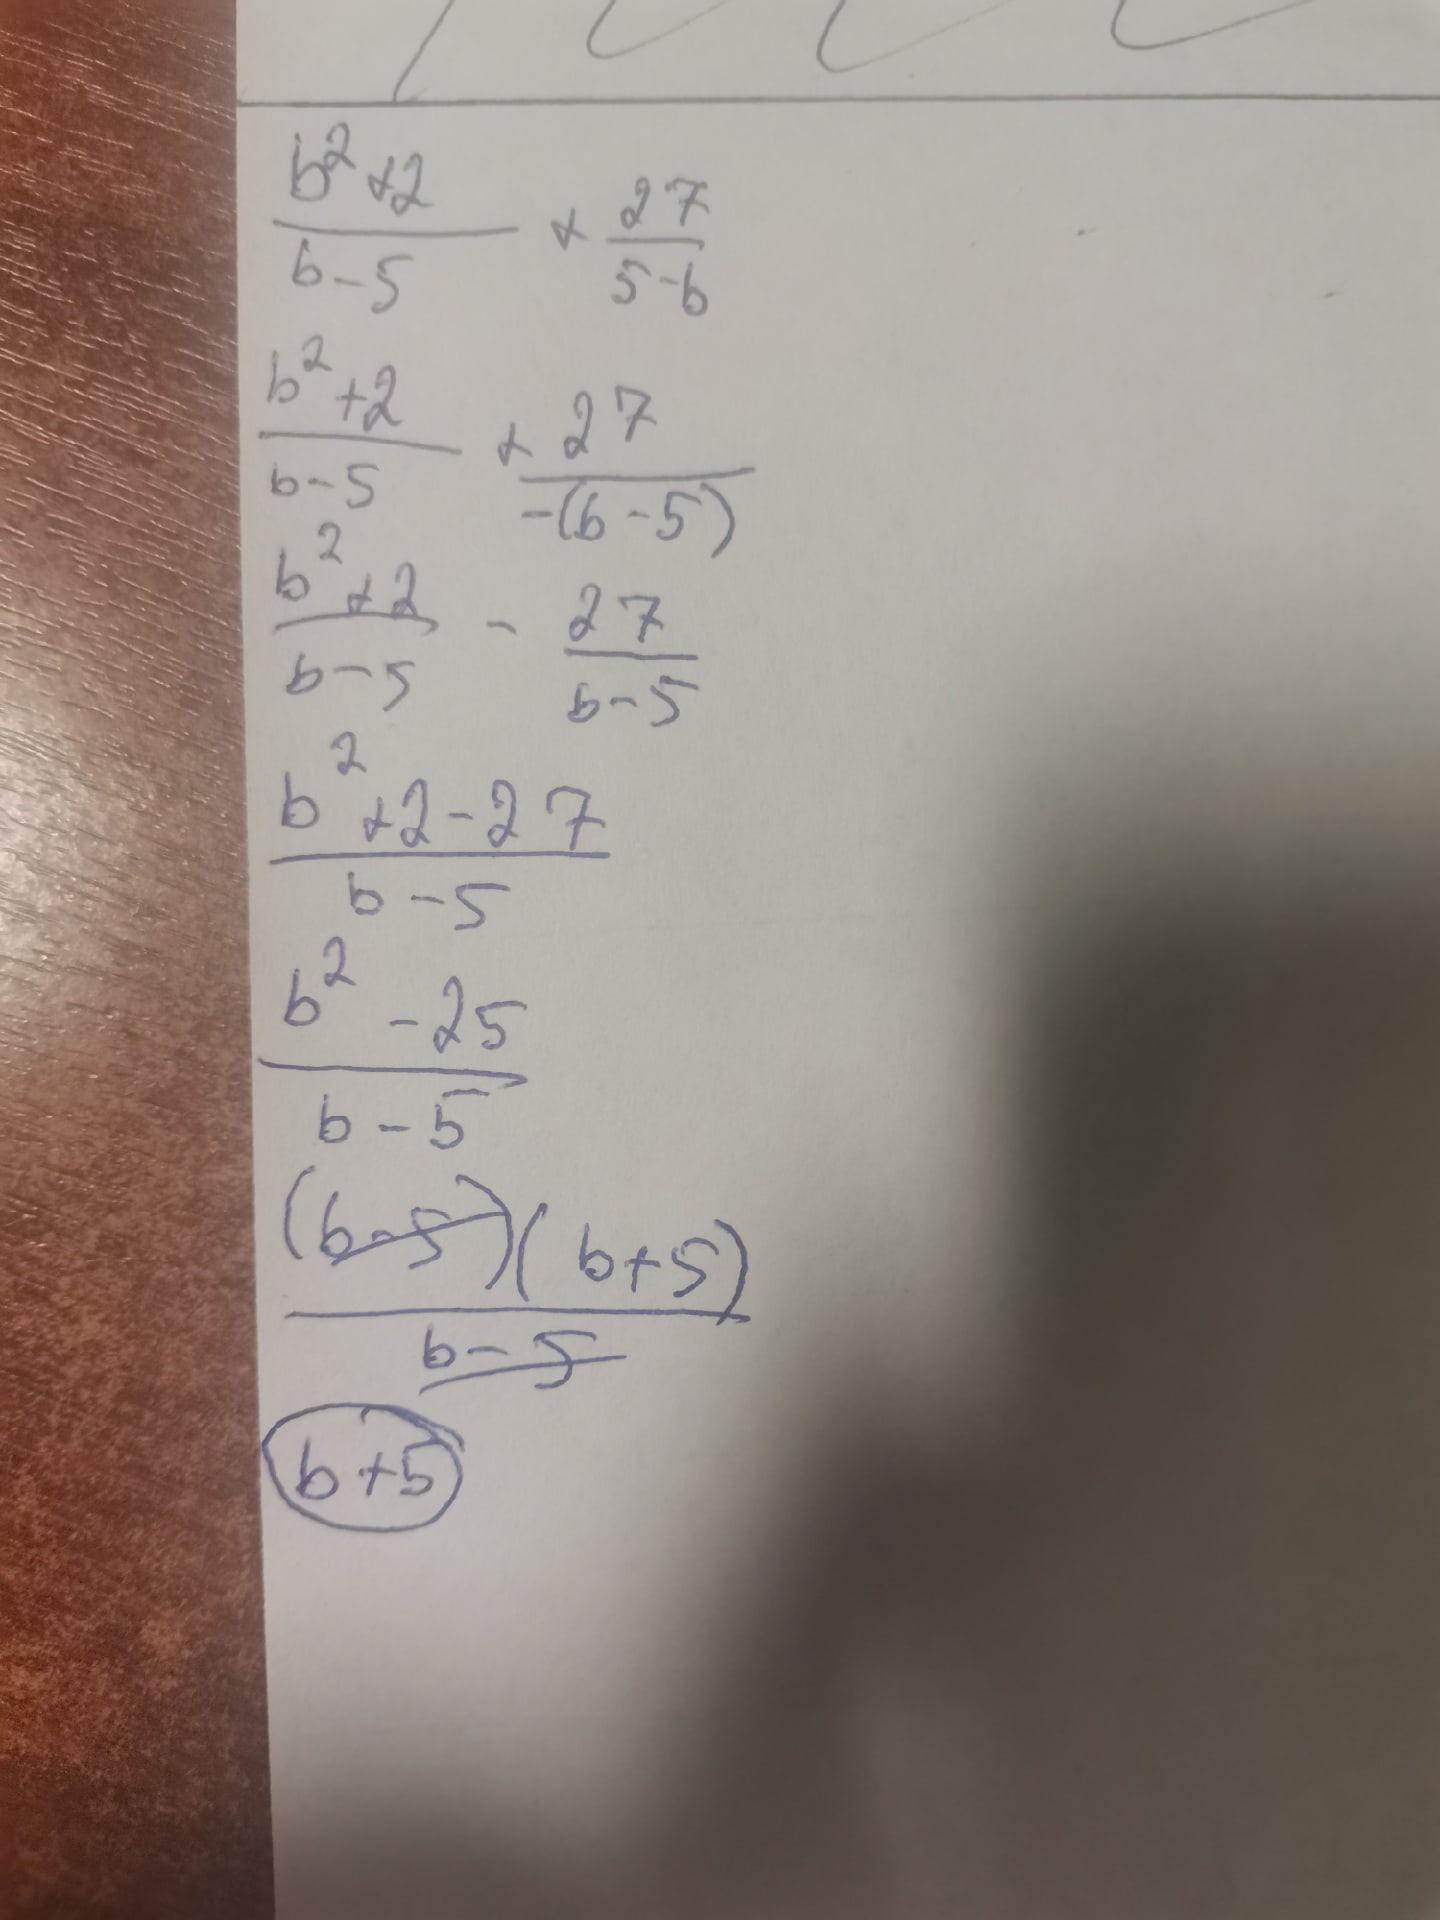 b² + 2 / b - 5 + 27 / 5 - b
b² + 2 / b - 5 + 27 / -(b - 5)
b² + 2 / b - 5 - 27 / b - 5
b² + 2 - 27 / b - 5
b² - 25 / b - 5
(b - 5)(b + 5) / b - 5
b + 5